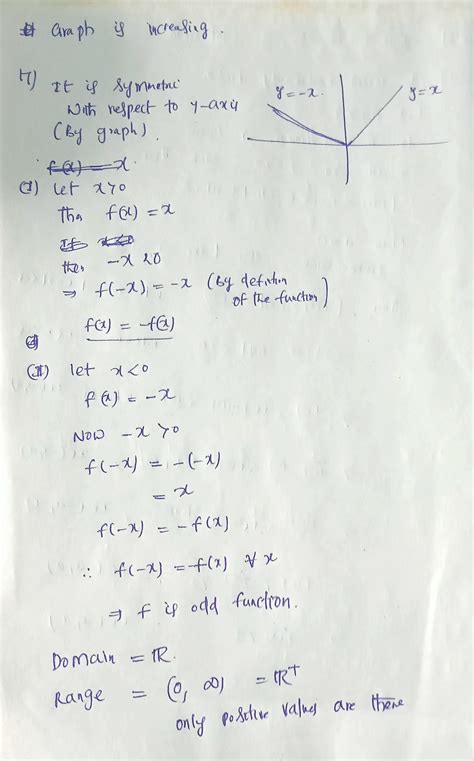 Graph is increasing.
7) It is symmetric
with respect to y-axis
(By graph).
y=-x.
y=x
f(x) = x.
(I) let x>0
Then f(x) = x
If x<0
then -x<0
⇒ f(-x) = -x (By definition
of the function)
f(x) = -f(x)
(II) let x<0
f(x) = -x
Now -x>0
f(-x) = -(-x)
= x
f(-x) = -f(x)
∴ f(-x) = -f(x) ∀ x
⇒ f is odd function.
Domain = ℝ.
Range = (0, ∞) = ℝ⁺
only positive values are there